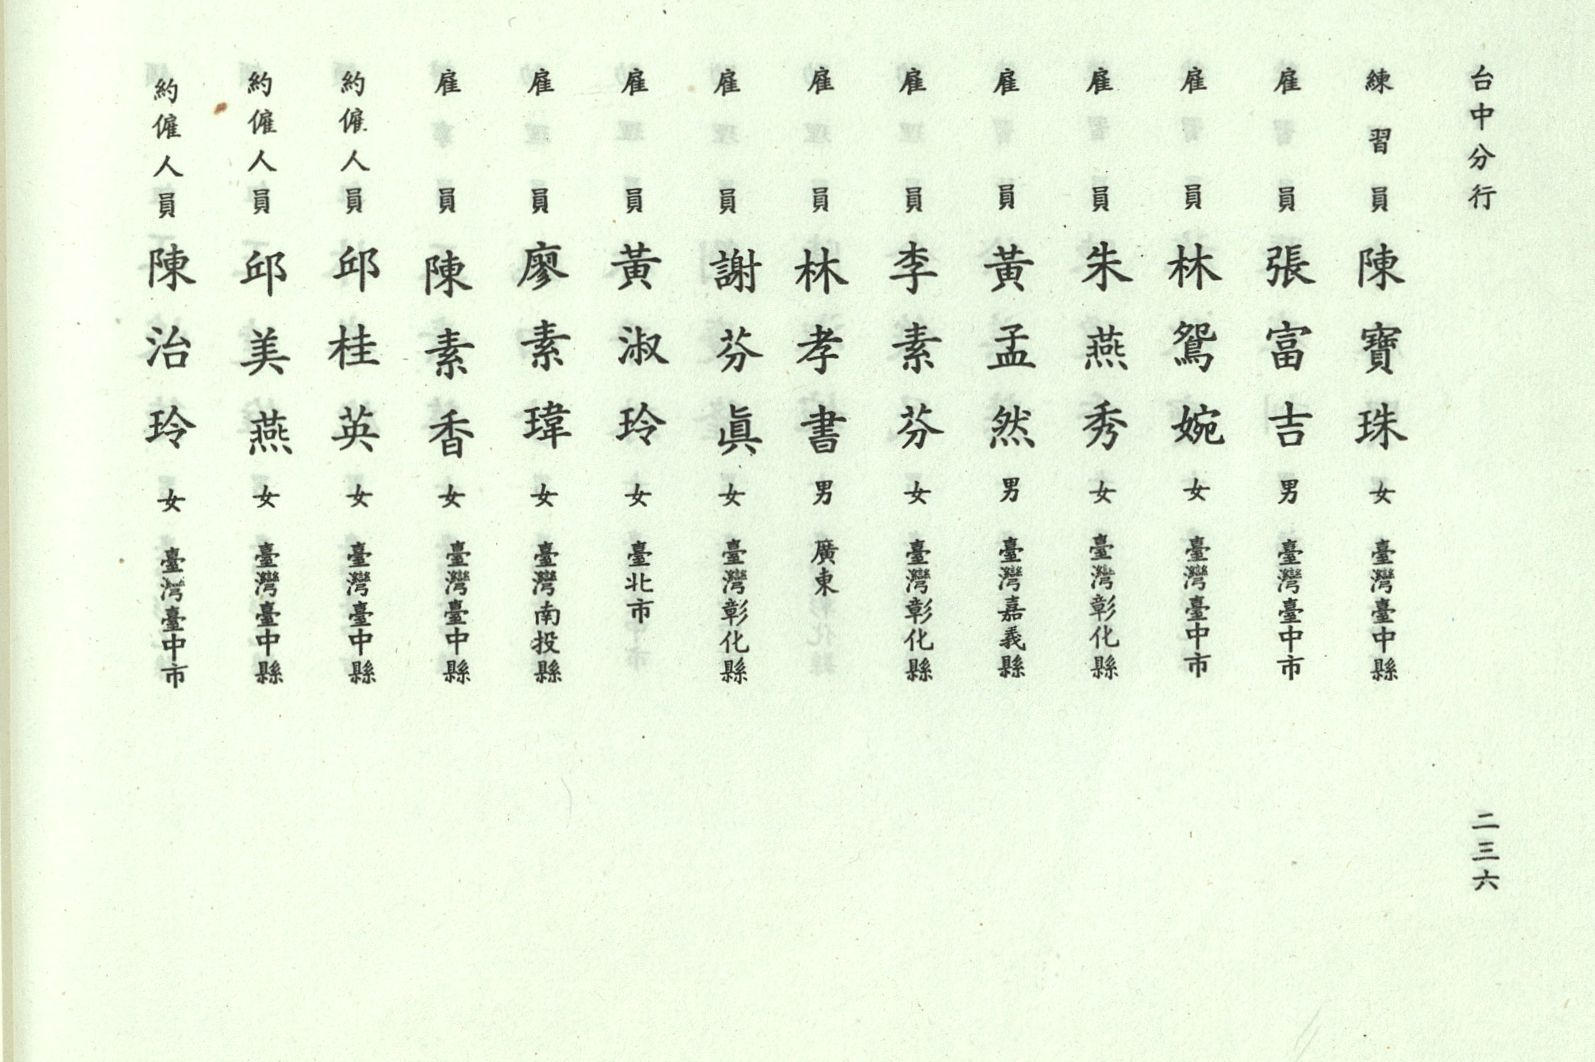 台中分行
二三六
練習員 陳寶珠 女 臺灣臺中縣
雇員 張富吉 男 臺灣臺中市
雇員 林鴛婉 女 臺灣臺中市
雇員 朱燕秀 女 臺灣彰化縣
雇員 黃孟然 男 臺灣嘉義縣
雇員 李素芬 女 臺灣彰化縣
雇員 林孝書 男 廣東
雇員 謝芬眞 女 臺灣彰化縣
雇員 黃淑玲 女 臺北市
雇員 廖素瑋 女 臺灣南投縣
雇員 陳素香 女 臺灣臺中縣
約僱人員 邱桂英 女 臺灣臺中縣
約僱人員 邱美燕 女 臺灣臺中縣
約僱人員 陳治玲 女 臺灣臺中市